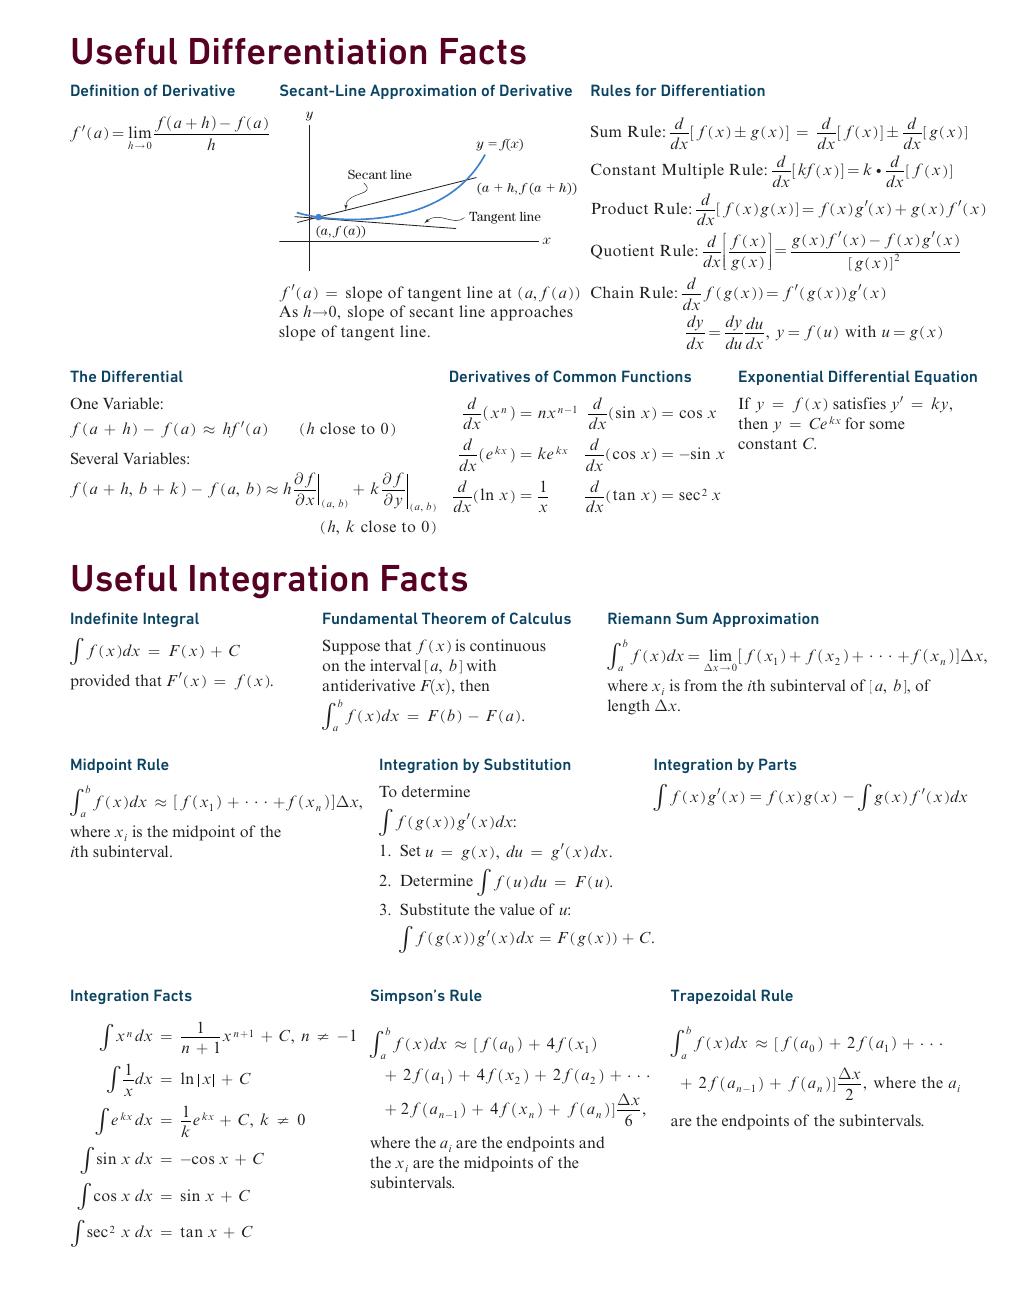 Useful Differentiation Facts
Definition of Derivative
f′(a) = lim h→0 f(a + h) − f(a) / h
Secant-Line Approximation of Derivative
y
y = f(x)
Secant line
(a + h, f(a + h))
Tangent line
(a, f(a))
x
f′(a) = slope of tangent line at (a, f(a))
As h→0, slope of secant line approaches
slope of tangent line.
Rules for Differentiation
Sum Rule: d/dx [f(x) ± g(x)] = d/dx [f(x)] ± d/dx [g(x)]
Constant Multiple Rule: d/dx [kf(x)] = k • d/dx [f(x)]
Product Rule: d/dx [f(x)g(x)] = f(x)g′(x) + g(x)f′(x)
Quotient Rule: d/dx [f(x)/g(x)] = g(x)f′(x) − f(x)g′(x) / [g(x)]²
Chain Rule: d/dx f(g(x)) = f′(g(x))g′(x)
dy/dx = dy/du du/dx, y = f(u) with u = g(x)
The Differential
One Variable:
f(a + h) − f(a) ≈ hf′(a) (h close to 0)
Several Variables:
f(a + h, b + k) − f(a, b) ≈ h ∂f/∂x |(a, b) + k ∂f/∂y |(a, b)
(h, k close to 0)
Derivatives of Common Functions
d/dx (xⁿ) = nxⁿ⁻¹ d/dx (sin x) = cos x
d/dx (e^kx) = ke^kx d/dx (cos x) = −sin x
d/dx (ln x) = 1/x d/dx (tan x) = sec² x
Exponential Differential Equation
If y = f(x) satisfies y′ = ky,
then y = Ce^kx for some
constant C.
Useful Integration Facts
Indefinite Integral
∫ f(x)dx = F(x) + C
provided that F′(x) = f(x).
Fundamental Theorem of Calculus
Suppose that f(x) is continuous
on the interval [a, b] with
antiderivative F(x), then
∫_a^b f(x)dx = F(b) − F(a).
Riemann Sum Approximation
∫_a^b f(x)dx = lim Δx→0 [f(x₁) + f(x₂) + · · · + f(xₙ)]Δx,
where xᵢ is from the ith subinterval of [a, b], of
length Δx.
Midpoint Rule
∫_a^b f(x)dx ≈ [f(x₁) + · · · + f(xₙ)]Δx,
where xᵢ is the midpoint of the
ith subinterval.
Integration by Substitution
To determine
∫ f(g(x))g′(x)dx:
1. Set u = g(x), du = g′(x)dx.
2. Determine ∫ f(u)du = F(u).
3. Substitute the value of u:
∫ f(g(x))g′(x)dx = F(g(x)) + C.
Integration by Parts
∫ f(x)g′(x) = f(x)g(x) − ∫ g(x)f′(x)dx
Integration Facts
∫ xⁿ dx = 1/(n + 1) xⁿ⁺¹ + C, n ≠ −1
∫ 1/x dx = ln|x| + C
∫ e^kx dx = 1/k e^kx + C, k ≠ 0
∫ sin x dx = −cos x + C
∫ cos x dx = sin x + C
∫ sec² x dx = tan x + C
Simpson's Rule
∫_a^b f(x)dx ≈ [f(a₀) + 4f(x₁)
+ 2f(a₁) + 4f(x₂) + 2f(a₂) + · · ·
+ 2f(aₙ₋₁) + 4f(xₙ) + f(aₙ)] Δx/6,
where the aᵢ are the endpoints and
the xᵢ are the midpoints of the
subintervals.
Trapezoidal Rule
∫_a^b f(x)dx ≈ [f(a₀) + 2f(a₁) + · · ·
+ 2f(aₙ₋₁) + f(aₙ)] Δx/2, where the aᵢ
are the endpoints of the subintervals.